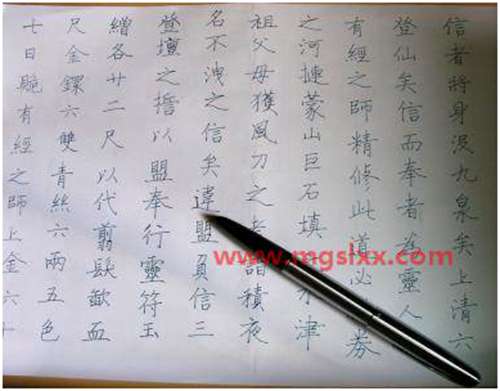 信者將身沒九泉矣上清六
登仙矣信而奉者靈人
有經之師精修此道必券
之河揵蒙山巨石填津
祖父母獲風刀之考詣積夜
名不洩之信矣違盟負信三
登壇之擔以盟奉行靈符玉
繒各廿二尺以代翦髮歃血
尺金鐶六雙青絲六兩五色
七日有經之師上金六十
www.mgsixx.com